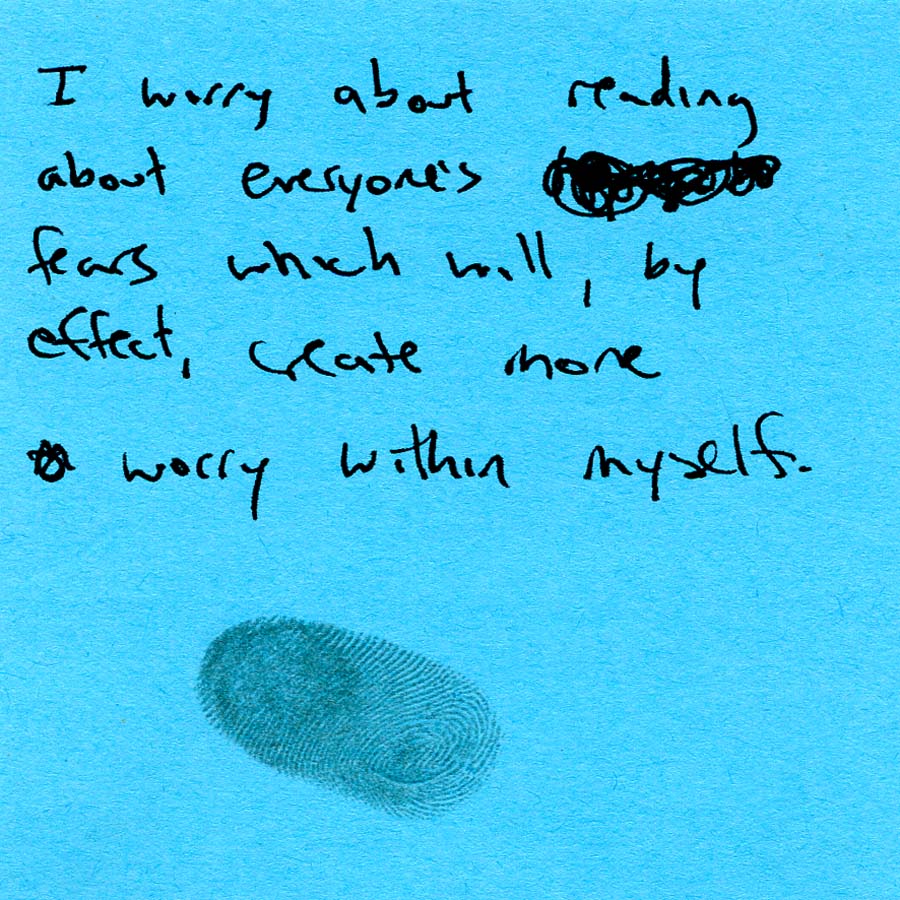 I worry about reading
about everyone's
fears which will, by
effect, create more
worry within myself.